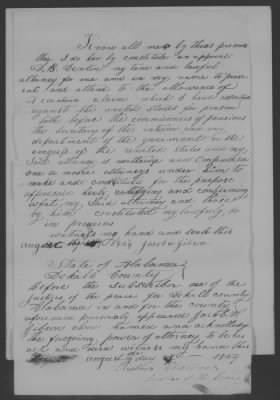 Know all men by these presents
that I do her by constitute an appoint
J. B. Denton my true and lawful
attorney for me and in my name to prose
cute and attend to the allowance of
a certain claim which I have
against the united states for pension
both before the commissioners of pensions
the directory of the interior or any
department of the government or the
congress of the united states and my
said attorney is authorized and empowered
one or more attorneys under him to
made and for this purpose
aforesaid hereby ratifying and confirming
what my said attorney and those
by him constituted my lawfully do
in premises
witness my hand and seale this
august the 1849 Jacob Gibson
State of Alabama
Dekalb County
before the Subscriber one of the
Justices of the peace for Dekalb county
Alabama in and for the county
aforesaid personaly appeared Jacob
above named and acknowledge
the foregoing power of attorney to be his
act and deed witness my hand this
august day 1849